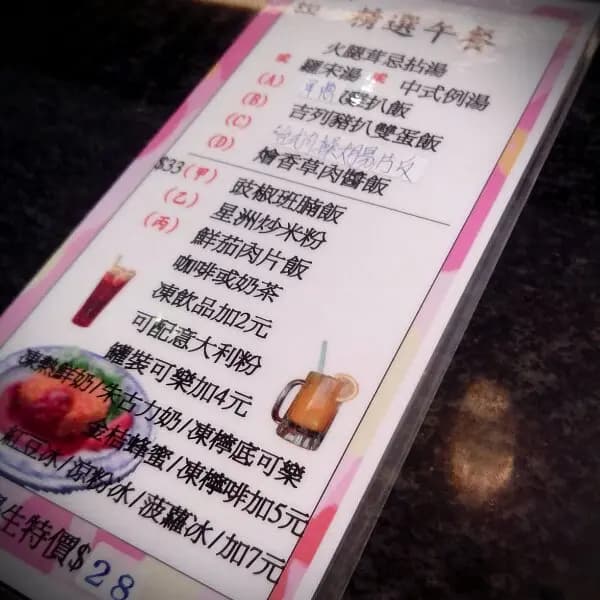 精選午餐
火腿茸忌拈湯
或 羅宋湯 或 中式例湯
(A) 飯
(B) 吉列豬扒雙蛋飯
(C)
(D) 燴香草肉醬飯
$33 (甲) 豉椒班腩飯
(乙) 星洲炒米粉
(丙) 鮮茄肉片飯
咖啡或奶茶
凍飲品加2元
可配意大利粉
罐裝可樂加4元
凍熱鮮奶/朱古力奶/凍檸底可樂
金桔蜂蜜/凍檸啡加5元
紅豆冰/涼粉冰/菠蘿冰/加7元
生特價$28